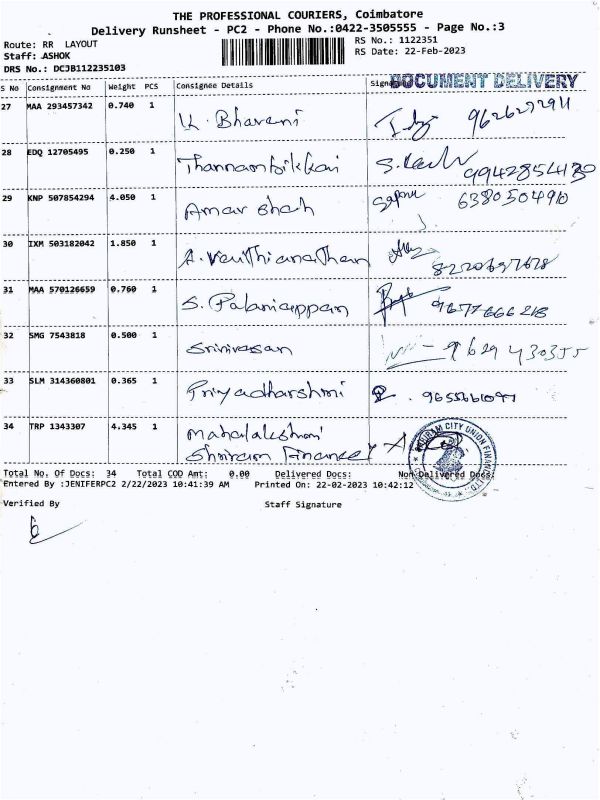 THE PROFESSIONAL COURIERS, Coimbatore
Delivery Runsheet - PC2 - Phone No.:0422-3505555 - Page No.:3
Route: RR LAYOUT
RS No.: 1122351
Staff: ASHOK
RS Date: 22-Feb-2023
DRS No.: DCJB112235103
DOCUMENT DELIVERY
S No Consignment No Weight PCS Consignee Details
27 MAA 293457342 0.740 1 K. Bhavani
28 EDQ 12705495 0.250 1 Thannambikkai
29 KNP 507854294 4.050 1 Amar Shah 6380504910
30 IXM 503182042 1.850 1 A. Vaithianathan
31 MAA 570126659 0.760 1 S. Palaniappan 9677666218
32 SMG 7543818 0.500 1 Srinivasan
33 SLM 314360801 0.365 1 Priyadharshini
34 TRP 1343307 4.345 1 Mahalakshmi
Shriram Finance
CITY UNION FINANCE LTD.
Total No. Of Docs: 34 Total COD Amt: 0.00 Delivered Docs: Non Delivered Docs:
Entered By :JENIFERPC2 2/22/2023 10:41:39 AM Printed On: 22-02-2023 10:42:12
Verified By Staff Signature